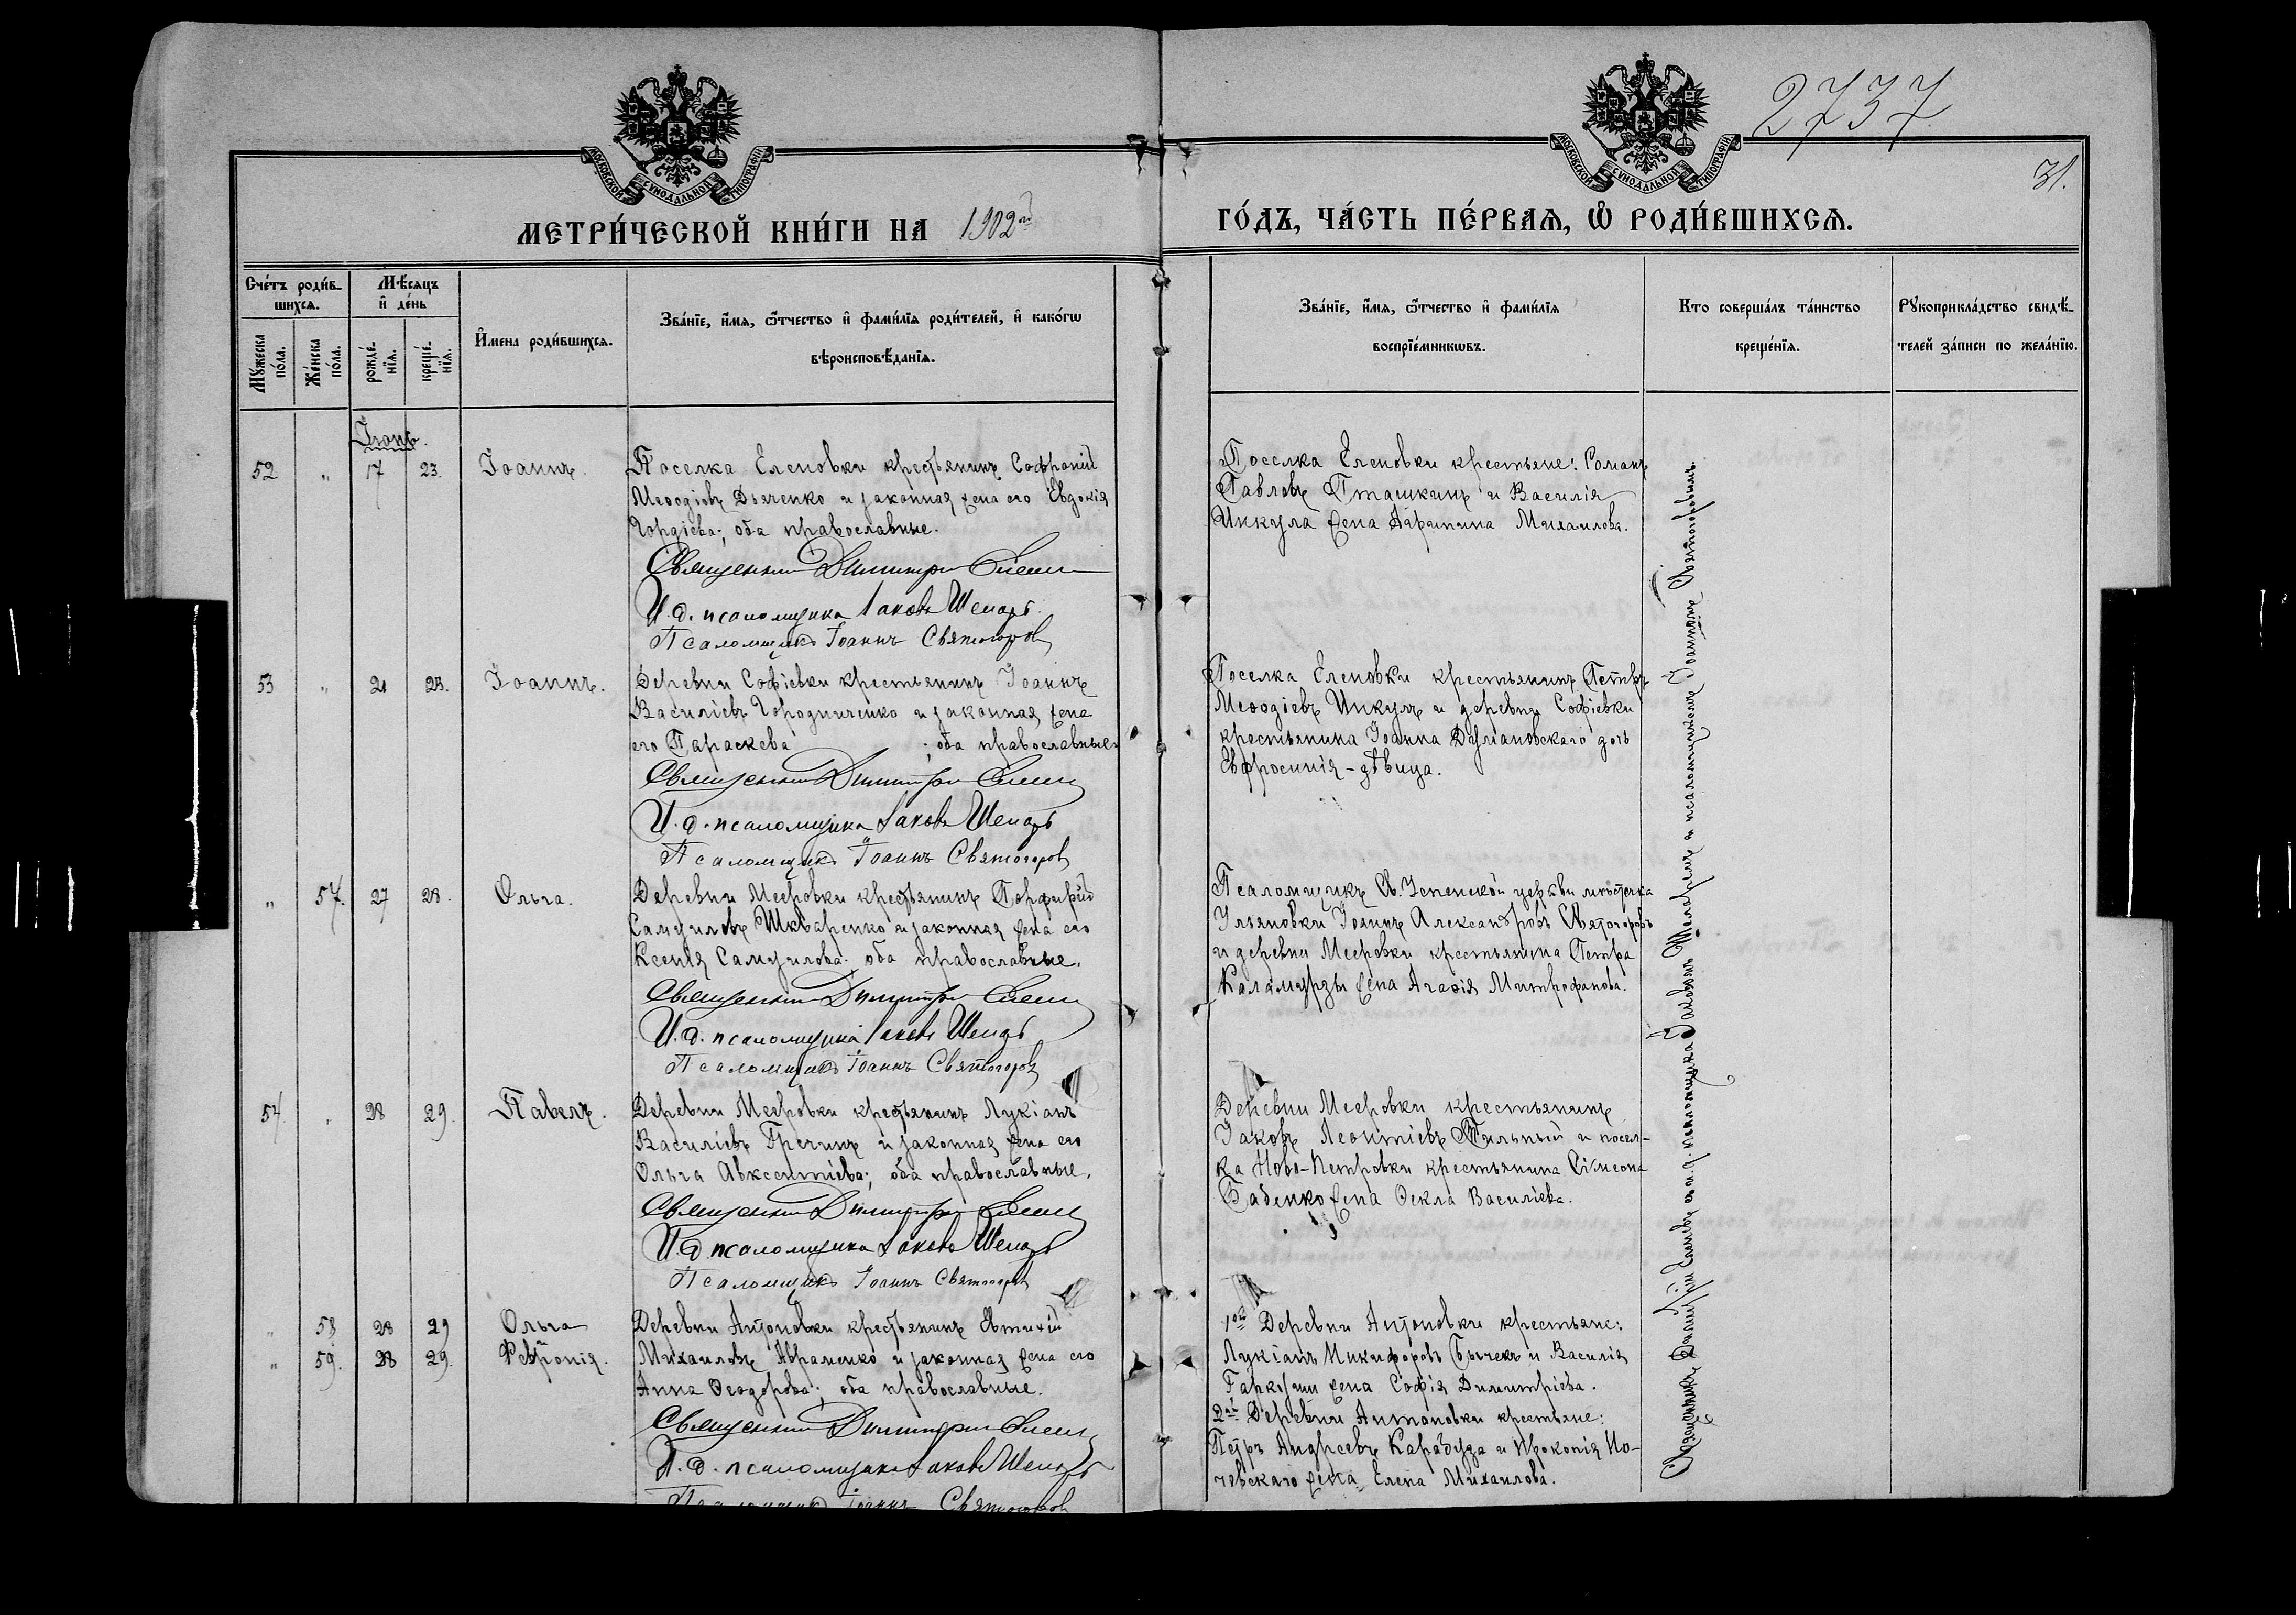 2737
31.
МОСКОВСКОЙ СѴНОДАЛЬНОЙ ТИПОГРАФІИ
МОСКОВСКОЙ СѴНОДАЛЬНОЙ ТИПОГРАФІИ
МЕТРИ́ЧЕСКОЙ КНИ́ГИ НА 1902ой
ГО́ДЪ, ЧА́СТЬ ПЕ́РВАѦ, Ѡ҆ РОДИ́ВШИХСѦ.
Сче́тъ роди́в-
шихсѧ.
Мꙋ́жеска по́ла.
Же́нска по́ла.
Мѣ́сѧцъ
и҆ де́нь
рожде́-
нїѧ.
креще́-
нїѧ.
И҆мена роди́вшихсѧ.
Зва́нїе, и҆́мѧ, ѻ҆́тчество и҆ фами́лїѧ роди́телей, и҆ како́гѡ
вѣроисповѣ́данїѧ.
Зва́нїе, и҆́мѧ, ѻ҆́тчество и҆ фами́лїѧ
воспрїе́мникѡвъ.
Кто соверша́лъ та́инство
креще́нїѧ.
Рꙋкоприкла́дство свидѣ́-
телей за́писи по жела́нїю.
Іюнь.
52 " 17 23. Іоаннъ.
Поселка Еленовки крестьянинъ Софроній
Меѳодіевъ Дьяченко и законная жена его Евдокія
Гордіева; оба православные.
Священникъ Димитрій
И. д. псаломщика Іаковъ
Псаломщикъ Іоаннъ Святогоровъ
Поселка Еленовки крестьяне: Романъ
Павловъ Пташкинъ и Василія
Цикула жена Агрипина Михаилова.
53 " 21 23. Іоаннъ.
Деревни Софіевки крестьянинъ Іоаннъ
Василіевъ Городниченко и законная жена
его Параскева ; оба православные.
Священникъ Димитрій
И. д. псаломщика Іаковъ
Псаломщикъ Іоаннъ Святогоровъ
Поселка Еленовки крестьянинъ Петръ
Меѳодіевъ Цикулъ и деревни Софіевки
крестьянина Іоанна дочь
Евфросинія - дѣвица.
" 57. 27 28. Ольга.
Деревни Мееровки крестьянинъ Порфирій
Самуиловъ Шкваренко и законная жена его
Ксенія Самуилова; оба православные.
Священникъ Димитрій
И. д. псаломщика Іаковъ
Псаломщикъ Іоаннъ Святогоровъ
Псаломщикъ Св. Успенской церкви мѣстечка
Ульяновки Іоаннъ Александровъ Святогоровъ
и деревни Мееровки крестьянина Петра
Каламурзы жена Агаѳія Митрофанова.
54. " 28 29. Павелъ.
Деревни Мееровки крестьянинъ Лукіанъ
Василіевъ Гречинъ и законная жена его
Ольга Авксентіева; оба православные.
Священникъ Димитрій
И. д. псаломщика Іаковъ
Псаломщикъ Іоаннъ Святогоровъ
Деревни Мееровки крестьянинъ
Іаковъ Леонтіевъ и посел-
ка Ново-Петровки крестьянина Симеона
Бабенко жена Ѳекла Василіева.
" 58 28 29 Ольга
" 59. 28 29. Февронія.
Деревни Антоновки крестьянинъ Евтихій
Михаиловъ Авраменко и законная жена его
Анна Ѳеодорова; оба православные.
Священникъ Димитрій
И. д. псаломщика Іаковъ
Псаломщикъ Іоаннъ Святогоровъ
1ой Деревни Антоновки крестьяне:
Лукіанъ Никифоровъ Бычекъ и Василія
Гаркуши жена Софія Димитріева.
2ой Деревни Антоновки крестьяне:
Петръ Андреевъ Карабуза и Прокопія По-
чевскаго жена Елена Михаилова.
Священникъ Димитрій съ и. д. псаломщика Іаковомъ и псаломщикомъ Іоанномъ Святогоровымъ.